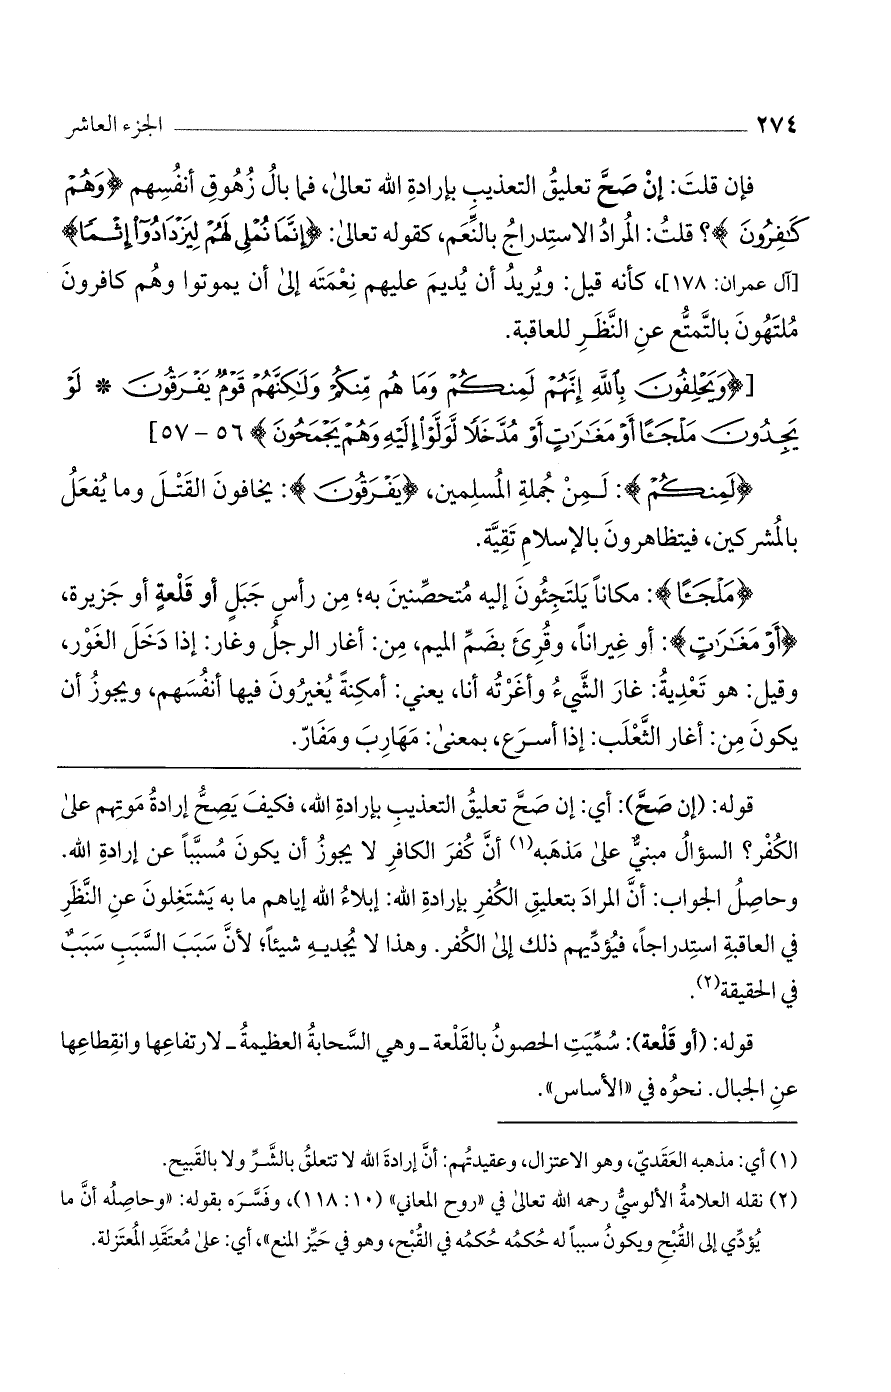 ٢٧٤ الجزء العاشر
فإن قلتَ: إنْ صَحَّ تعليقُ التعذيبِ بإرادةِ الله تعالىٰ، فما بالُ زُهُوقِ أنفُسِهم ﴿وَهُمْ
كَٰفِرُونَ﴾؟ قلتُ: المُرادُ الاستِدراجُ بالنِّعَم، كقوله تعالىٰ: ﴿إِنَّمَا نُمْلِي لَهُمْ لِيَزْدَادُوٓا۟ إِثْمًا﴾
[آل عمران: ١٧٨]، كأنه قيل: ويُريدُ أن يُديمَ عليهم نِعْمَته إلىٰ أن يموتوا وهُم كافرونَ
مُلتَهُونَ بالتَّمتُّع عنِ النَّظَـرِ للعاقبة.
[﴿وَيَحْلِفُونَ بِٱللَّهِ إِنَّهُمْ لَمِنكُمْ وَمَا هُم مِّنكُمْ وَلَٰكِنَّهُمْ قَوْمٌ يَفْرَقُونَ * لَوْ
يَجِدُونَ مَلْجَـًٔا أَوْ مَغَٰرَٰتٍ أَوْ مُدَّخَلًا لَّوَلَّوْا۟ إِلَيْهِ وَهُمْ يَجْمَحُونَ﴾ ٥٦ - ٥٧]
﴿لَمِنكُمْ﴾: لَـمِنْ جُملةِ المُسلِمين، ﴿يَفْرَقُونَ﴾: يخافونَ القَتْـلَ وما يُفعَلُ
بالمُشركين، فيتظاهرونَ بالإسلامِ تَقِيَّة.
﴿مَلْجَـًٔا﴾: مكاناً يَلتَجِئُونَ إليه مُتحصِّنينَ به؛ مِن رأسِ جَبَلٍ أو قَلْعةٍ أو جَزيرة،
﴿أَوْ مَغَٰرَٰتٍ﴾: أو غِيراناً، وقُرِئَ بضَمِّ الميم، مِن: أغار الرجلُ وغار: إذا دَخَلَ الغَوْر،
وقيل: هو تَعْدِيةُ: غارَ الشَّيءُ وأغَرْتُه أنا، يعني: أمكِنةً يُغيرُونَ فيها أنفُسَهم، ويجوزُ أن
يكونَ مِن: أغار الثَّعْلَب: إذا أسـرَع، بمعنىٰ: مَهَارِبَ ومَفَارّ.
قوله: (إن صَحَّ): أي: إن صَحَّ تعليقُ التعذيبِ بإرادةِ الله، فكيفَ يَصِحُّ إرادةُ مَوتِهم علىٰ
الكُفْر؟ السؤالُ مبنيٌّ علىٰ مَذهَبِه(١) أنَّ كُفرَ الكافرِ لا يجوزُ أن يكونَ مُسبَّباً عن إرادةِ الله.
وحاصِلُ الجواب: أنَّ المرادَ بتعليقِ الكُفرِ بإرادةِ الله: إبلاءُ الله إياهم ما به يَشتَغِلونَ عنِ النَّظَرِ
في العاقبةِ استِدراجاً، فيُؤدِّيهم ذلك إلىٰ الكُفر. وهذا لا يُجديـهِ شيئاً؛ لأنَّ سَبَبَ السَّبَبِ سَبَبٌ
في الحقيقة(٢).
قوله: (أو قَلْعة): سُمِّيَتِ الحصونُ بالقَلْعة ـ وهي السَّحابةُ العظيمةُ ـ لارتفاعِها وانقِطاعِها
عنِ الجبال. نحوُه في «الأساس».
(١) أي: مذهبه العَقَديّ، وهو الاعتزال، وعقيدتُهم: أنَّ إرادةَ الله لا تتعلقُ بالشَّـرِّ ولا بالقَبيح.
(٢) نقله العلامةُ الألوسيُّ رحمه الله تعالىٰ في «روح المعاني» (١٠: ١١٨)، وفَسَّـرَه بقوله: «وحاصِلُه أنَّ ما
يُؤدِّي إلى القُبْحِ ويكونُ سبباً له حُكمُه حُكمُه في القُبْح، وهو في حَيِّزِ المنع»، أي: علىٰ مُعتَقَدِ المُعتَزلة.